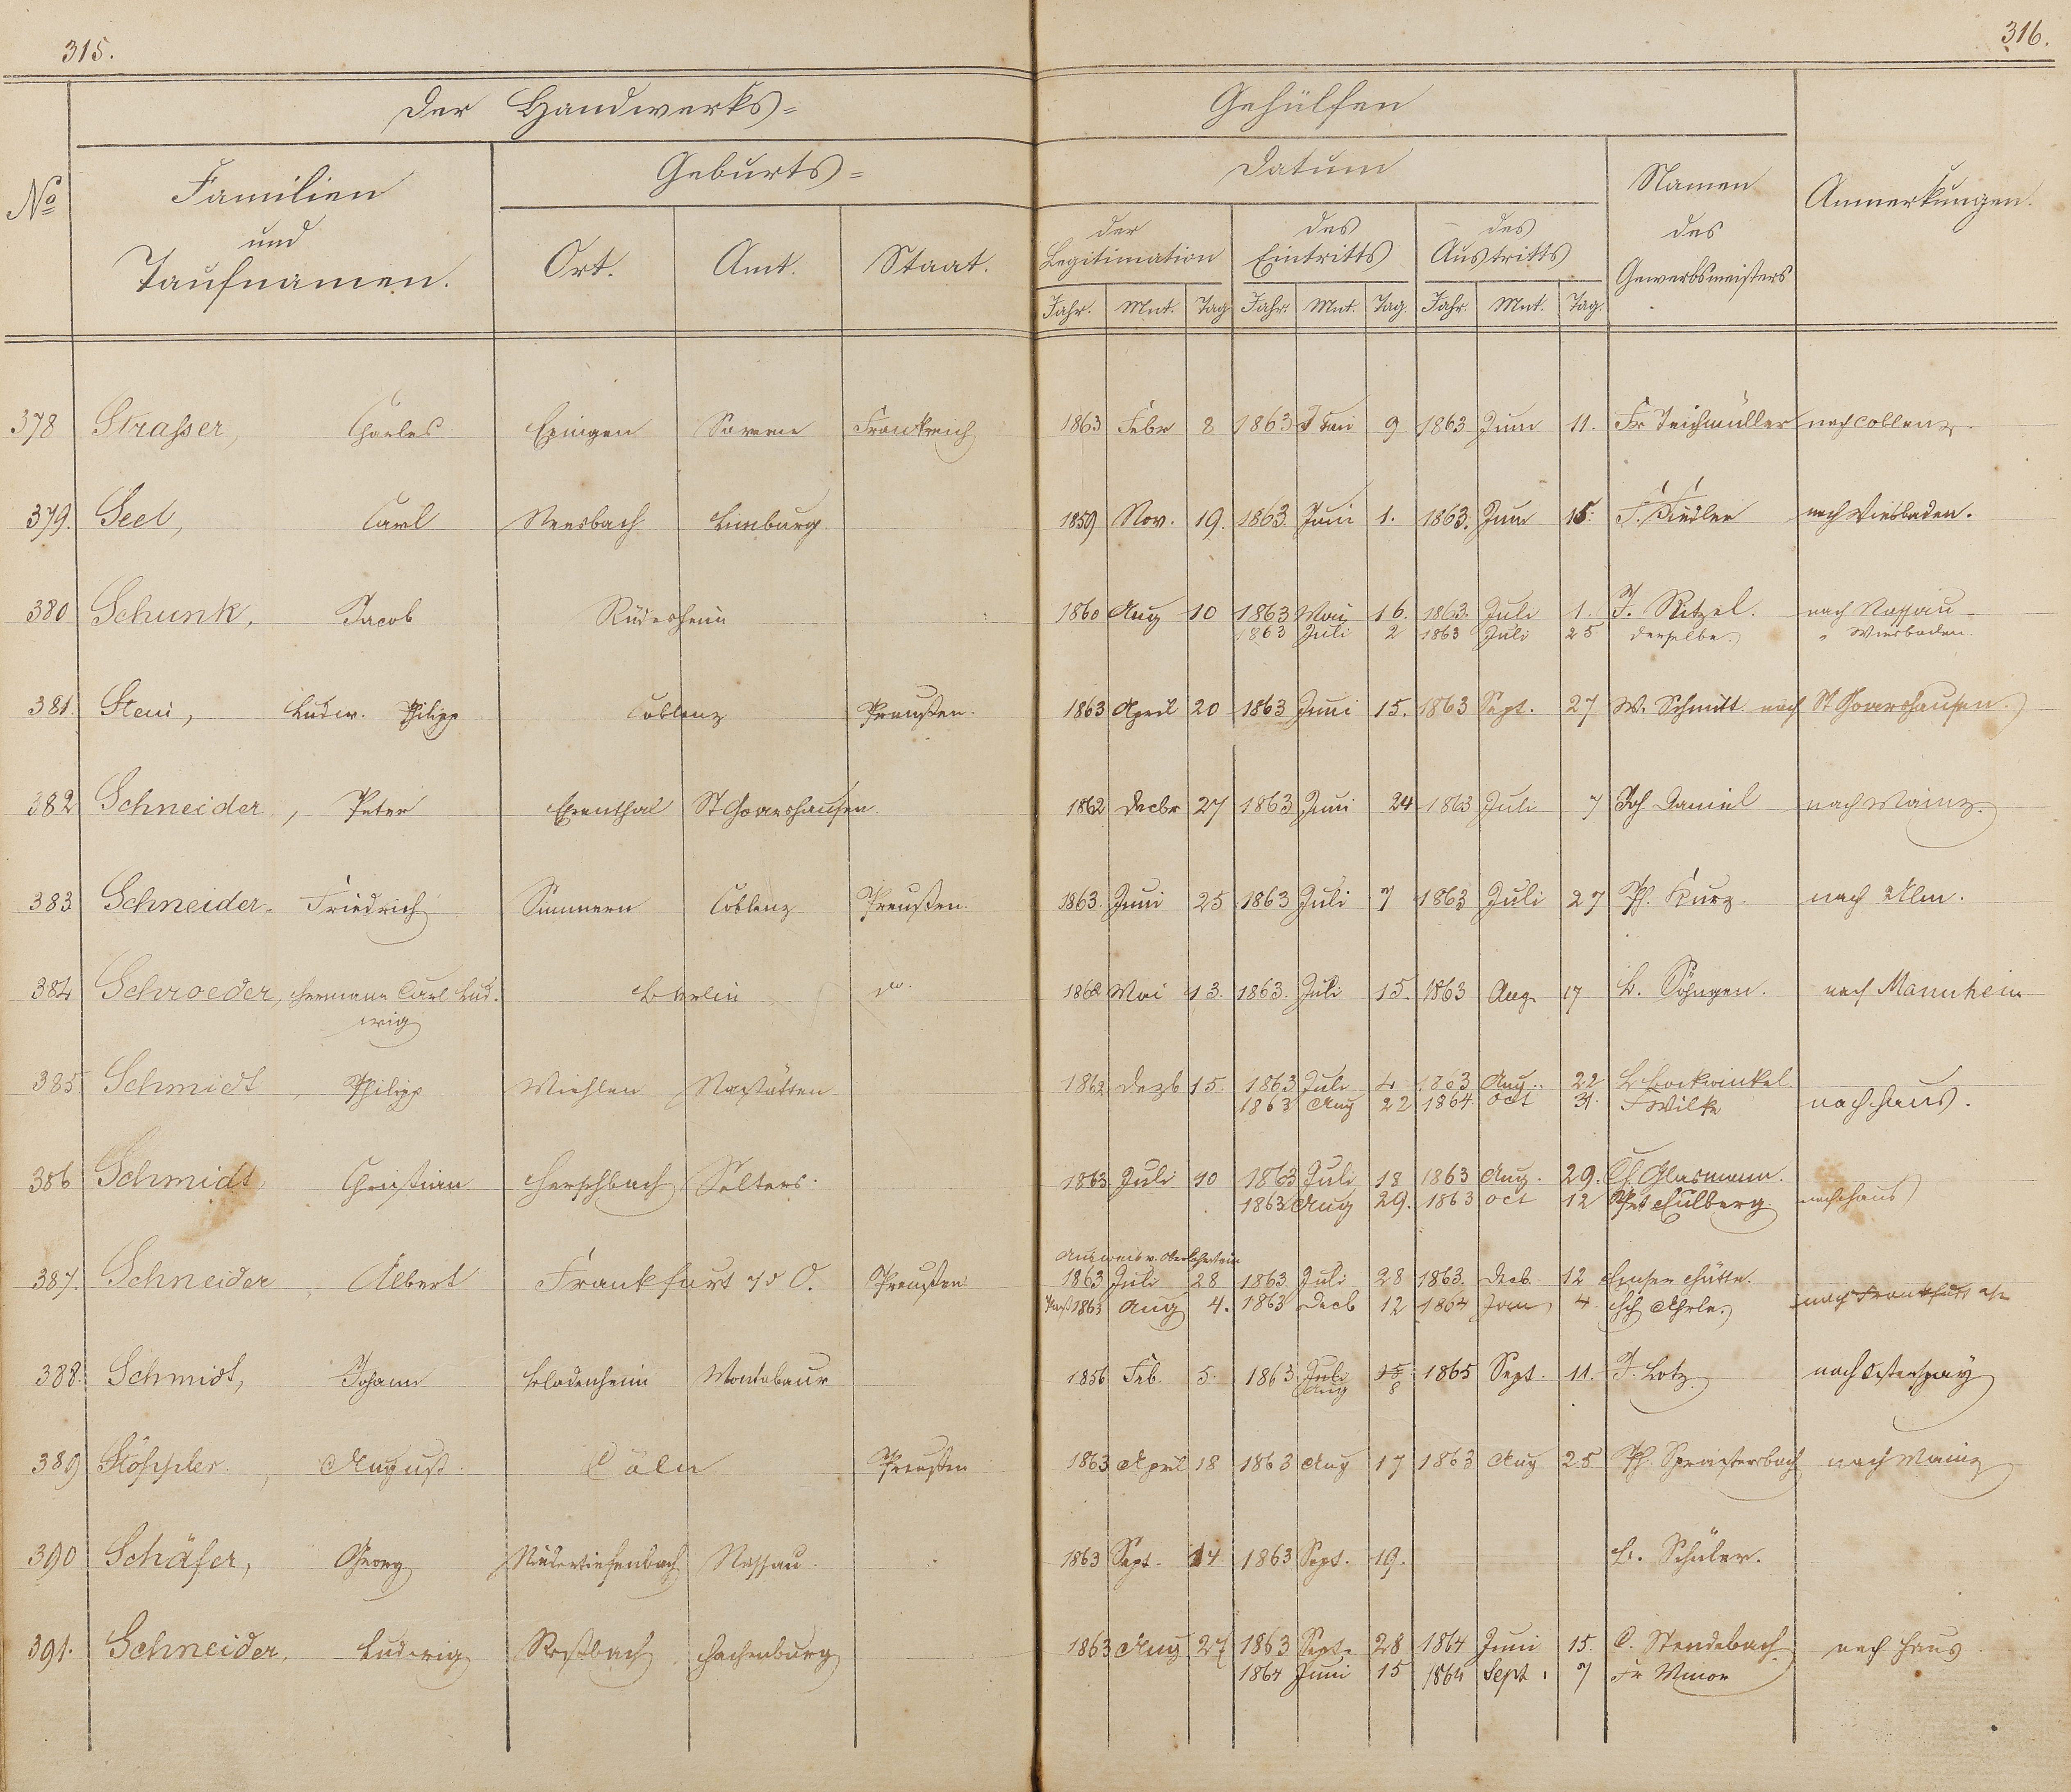 315.
316.
Der Handwerks=
Gehülfen
No
Familien
und
Taufnamen.
Geburts=
Ort.
Amt.
Staat.
Datum
der
Legitimation
des
Eintritts
des
Austritts
Jahr. Mnt. Tag Jahr. Mnt. Tag. Jahr. Mnt. Tag.
Namen
des
Gewerbsmeisters
Anmerkungen.
378 Strasser, Charles Frankreich 1863 Febr 8 1863 9 1863 Juni 11. Fr Teichmüller nach Coblenz.
379. Seel, Carl Neesbach Limburg. 1859 Nov. 19. 1863. Juni 1. 1863. Juni 15. nach Wiesbaden.
380 Schunk, Jacob Rüdesheim 1860 Aug 10 1863 Mai 16. 1863. Juli 1. J. Ritzel. nach Nassau.
1863 Juli 2 1863 Juli 25. derselbe. " Wiesbaden.
381. Stein, Ludw. Philipp Coblenz Preußen. 1863 April 20 1863 Juni 15. 1863 Sept. 27 W. Schmitt. nach St Goarshausen.
382 Schneider, Peter Ehrenthal St Goarshausen. 1862 Decbr 27 1863 Juni 24 1863 Juli 7 Joh Daniel nach Mainz.
383 Schneider, Friedrich Simmern Coblenz Preußen. 1863. Juni 25 1863 Juli 7 1863 Juli 27 Ph. Kurz. nach Ulm.
384 Schroeder, Hermann Carl Lud-
wig Berlin do. 1862 Mai 13. 1863. Juli 15. 1863 Aug. 17 L. Söhngen. nach Mannheim
385 Schmidt, Philipp Miehlen Nastätten 1862 Dezb 15. 1863 Juli 4 1863 Aug. 22 L Bockwinkel.
1863 Aug 22 1864. Oct 31. F Wilke nach Haus.
386 Schmidt, Christian Herschbach Selters. 1863 Juli 10 1863 Juli 18 1863 Aug. 29. Ch. Glasmann.
1863 Aug 29. 1863 Oct 12 nach Haus
Ausweis v. Oberlahnstein
387. Schneider, Albert Frankfurt a/d O. Preußen 1863 Juli 28 1863 Juli 28 1863. Decb. 12 Emser Hütte.
1863 Aug 4. 1863 Decb 12 1864 Jan 4. nach Frankfurt
388. Schmidt, Johann Bladernheim Montabaur 1856 Feb. 5. 1863 Juli 15 1865 Sept. 11. J. Lotz nach Osterspay
Aug 8
389 August. Cöln Preußen 1863 April 18 1863 Aug 17 1863 Aug 25 nach Mainz
390 Schäfer, Georg Niedertiefenbach Nassau. 1863 Sept. 14 1863 Sept. 19. L. Schüler.
391. Schneider, Ludwig Roßbach Hachenburg 1863 Aug 27 1863 Sept. 28 1864 Juni 15. C. Stendebach nach Haus
1864 Juni 15 1864 Sept. 7 Fr Minor